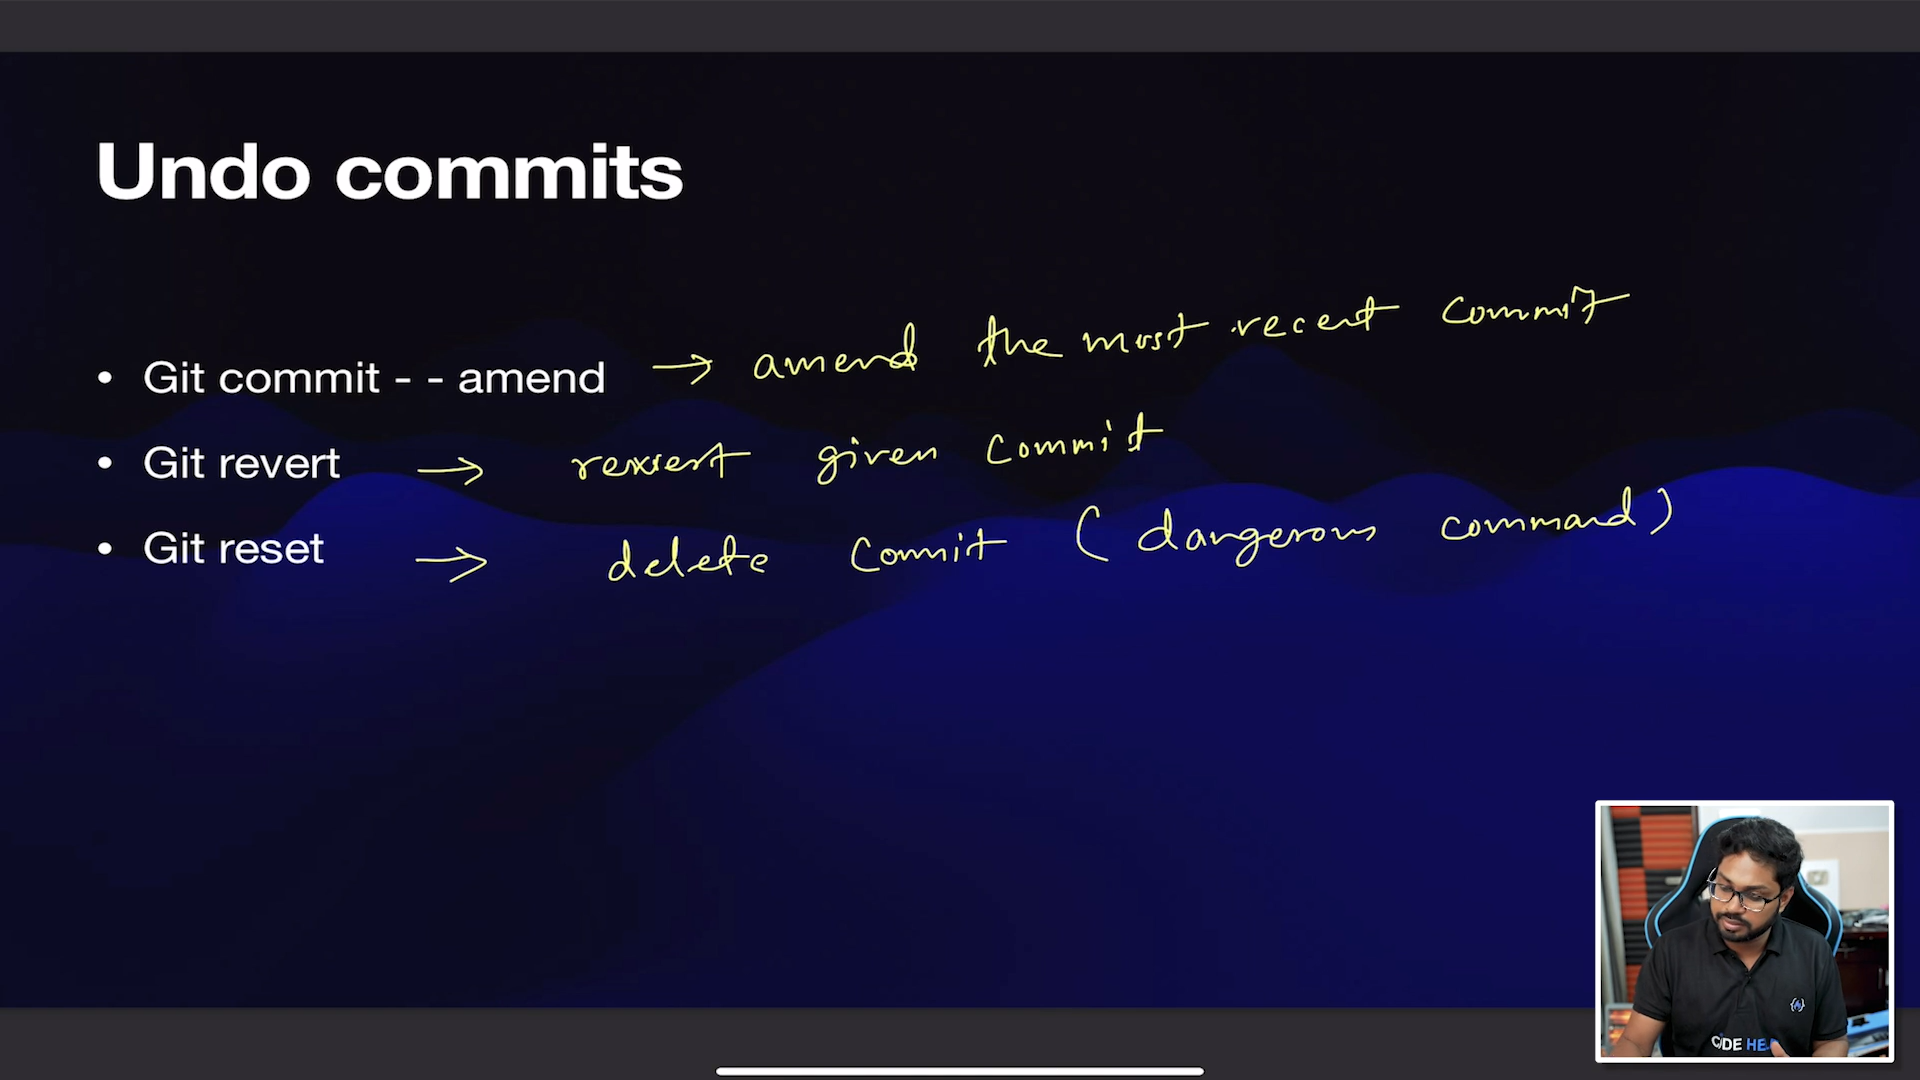 Undo commits
• Git commit - - amend → amend the most recent commit
• Git revert → revert given commit
• Git reset → delete commit (dangerous command)